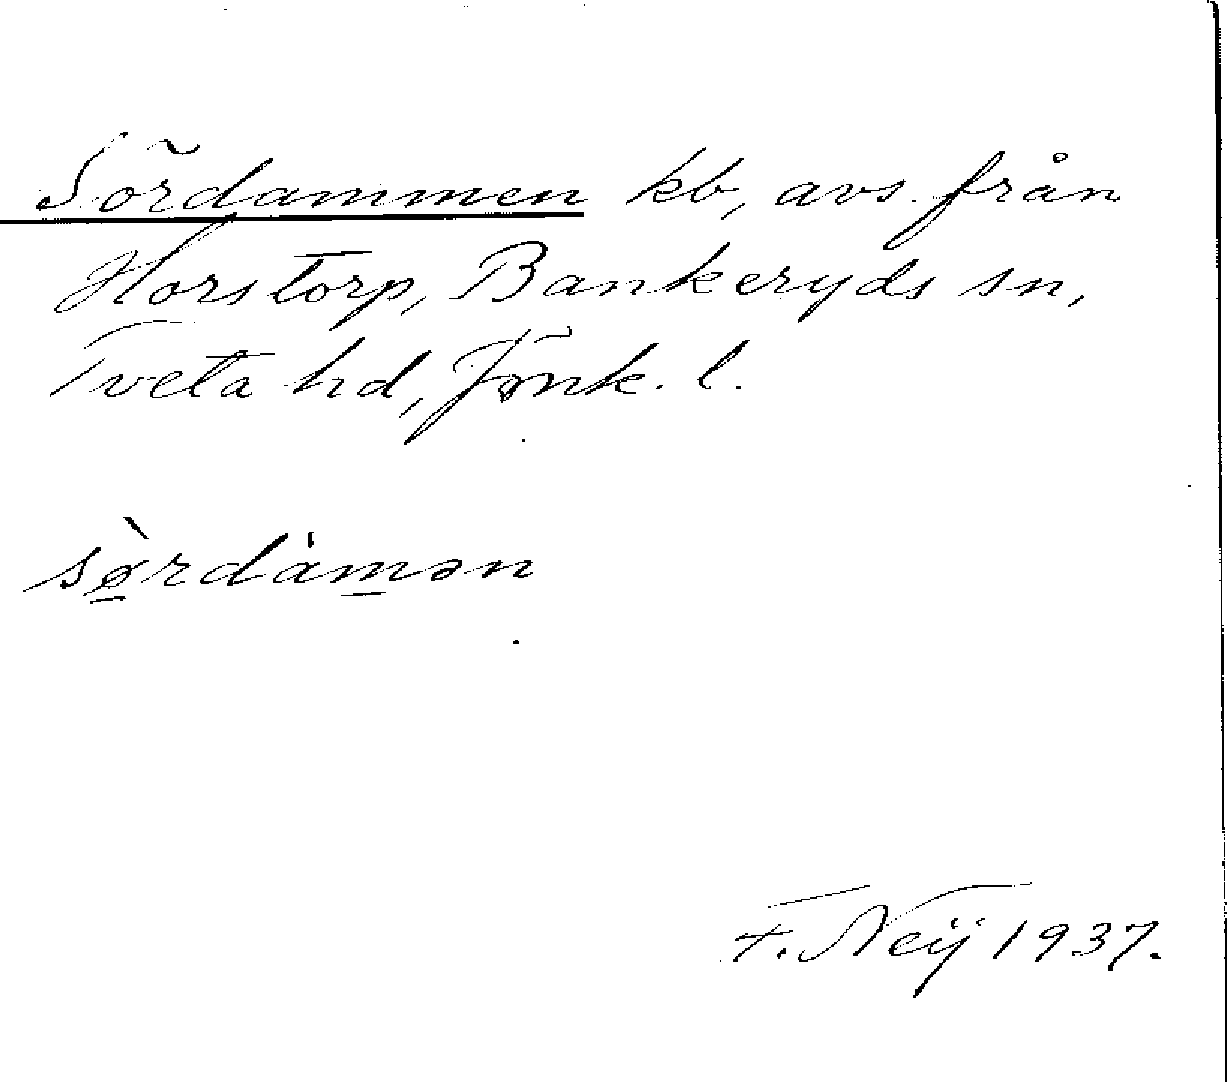 Sördammen kb, avs. från
Horstorp, Bankeryds sn,
Tveta hd, Jönk. l.
sø̀rdàmən
F. Neij 1937.